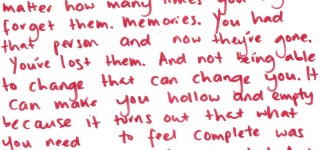 matter how many times you
forget them. Memories. You had
that person and now they're gone.
You've lost them. And not being able
to change that can change you. It
can make you hollow and empty
because it turns out that what
you need to feel complete was